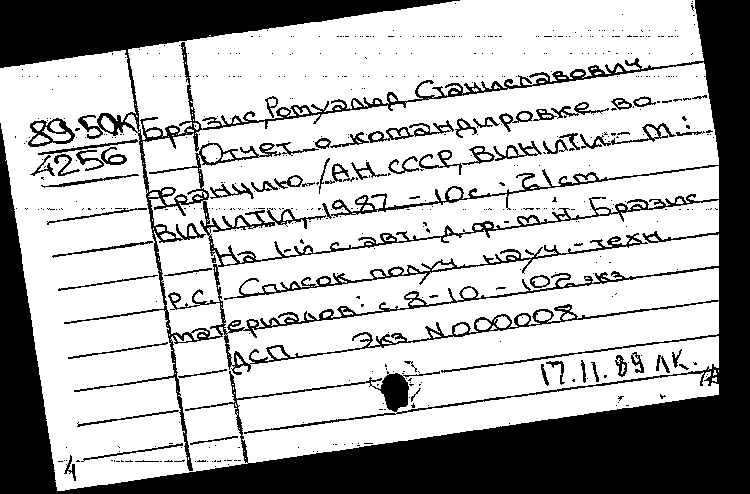 89-50К Бразис, Ромуалид Станиславович.
4256 Отчет о командировке во
Францию /АН СССР, ВИНИТИ. - М.:
ВИНИТИ, 1987. - 10с.; 21см.
На 1-й с. авт.: д.ф.-м.н. Бразис
Р.С. Список получ. науч.-техн.
материалов: с. 8-10. - 102 экз.
ДСП. Экз N000008.
17.11.89 ЛК.
4